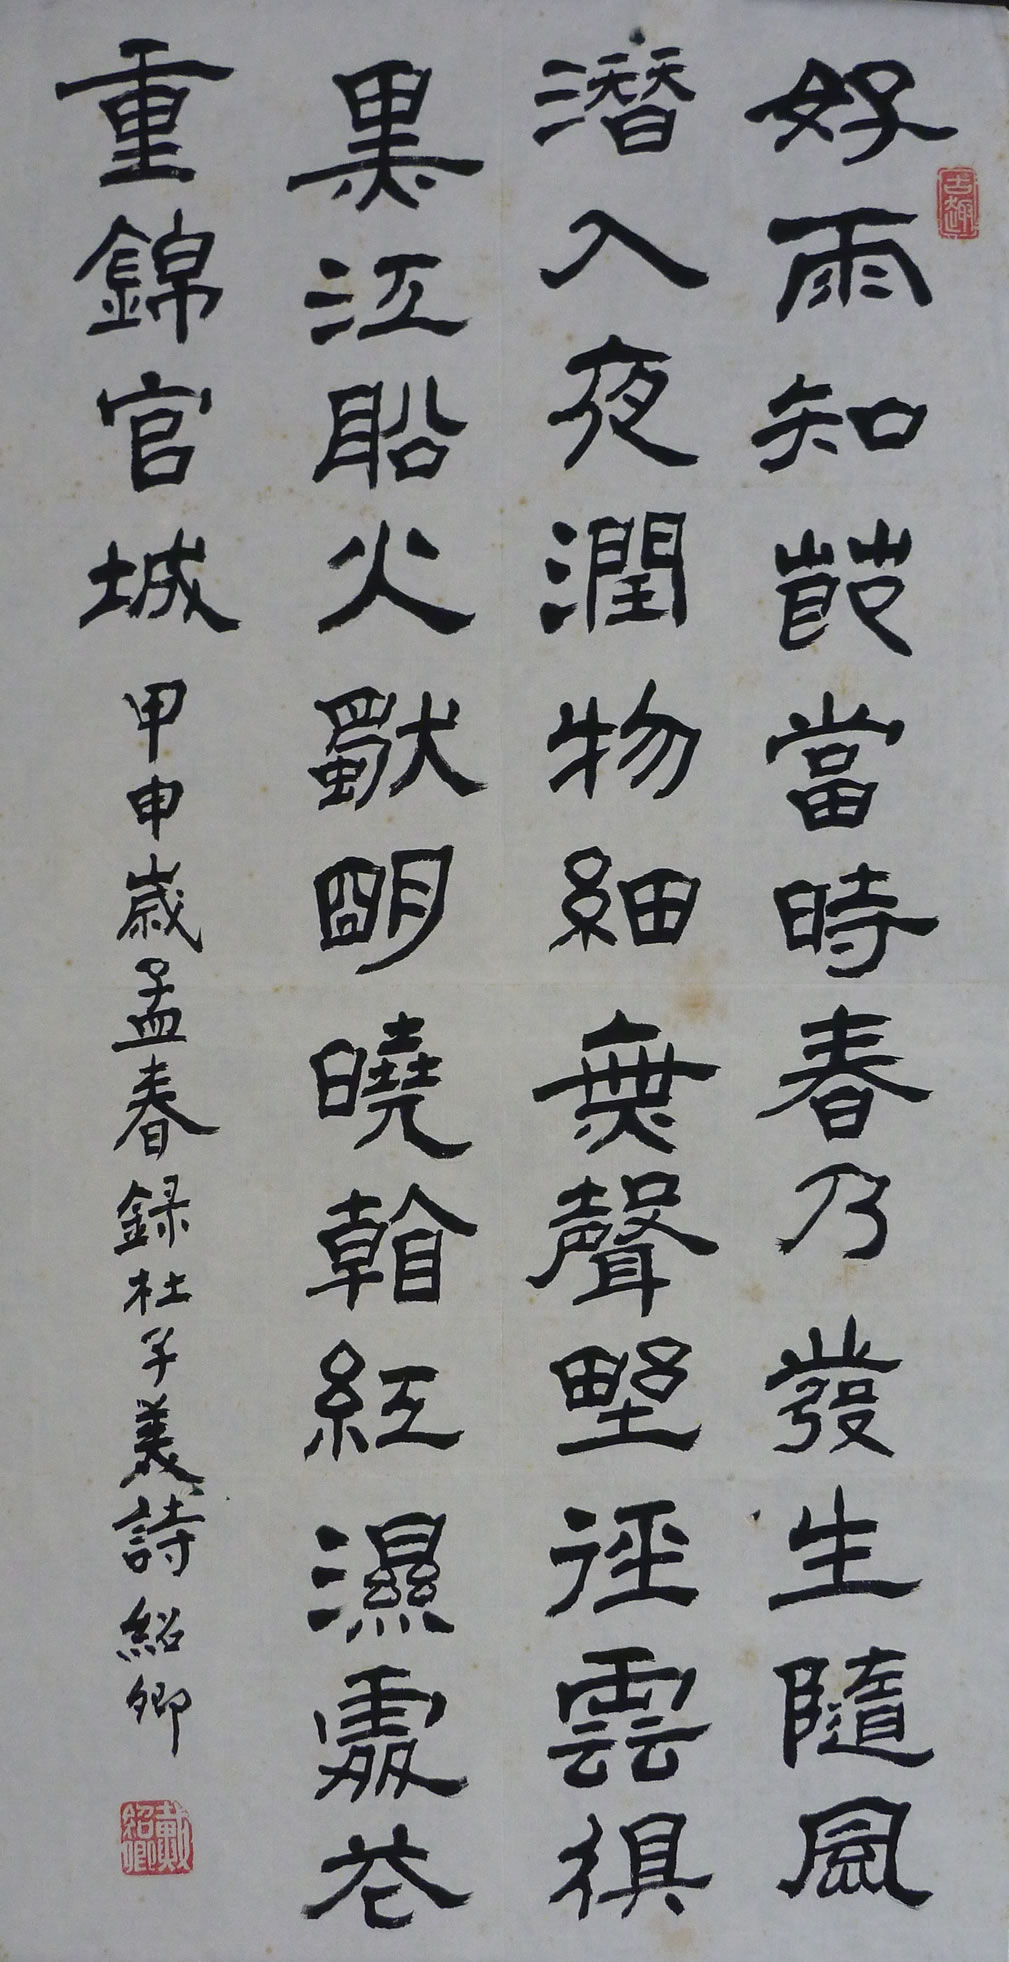 好雨知節當時春乃發生隨風
古趣
潛入夜潤物細無聲野徑雲俱
黑江船火獨明曉看紅濕處花
重錦官城 甲申歲孟春録杜子美詩紹卿
戴紹卿